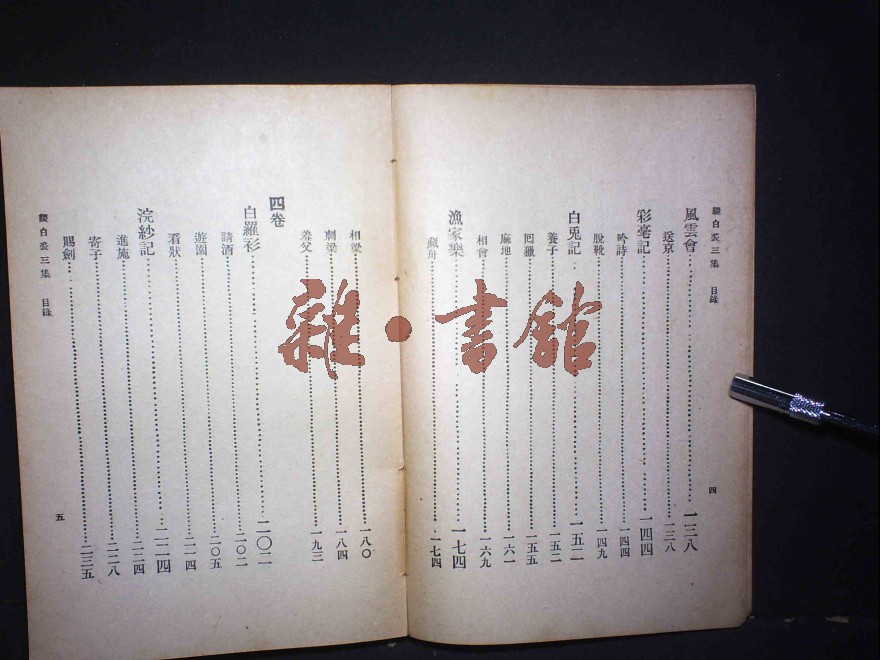 綴白裘三集 目錄
四
風雲會 一三八
送京 一三八
彩毫記 一四四
吟詩 一四四
脫靴 一四九
白兎記 一五二
養子 一五二
回獵 一五五
麻地 一六一
相會 一六九
漁家樂 一七四
藏舟 一七四
相梁 一八〇
刺梁 一八四
羞父 一九三
四卷
白羅衫 二〇二
請酒 二〇二
遊園 二〇五
看狀 二一四
浣紗記 二二四
進施 二二四
寄子 二二八
賜劍 二三五
綴白裘三集 目錄
五
雜·書館